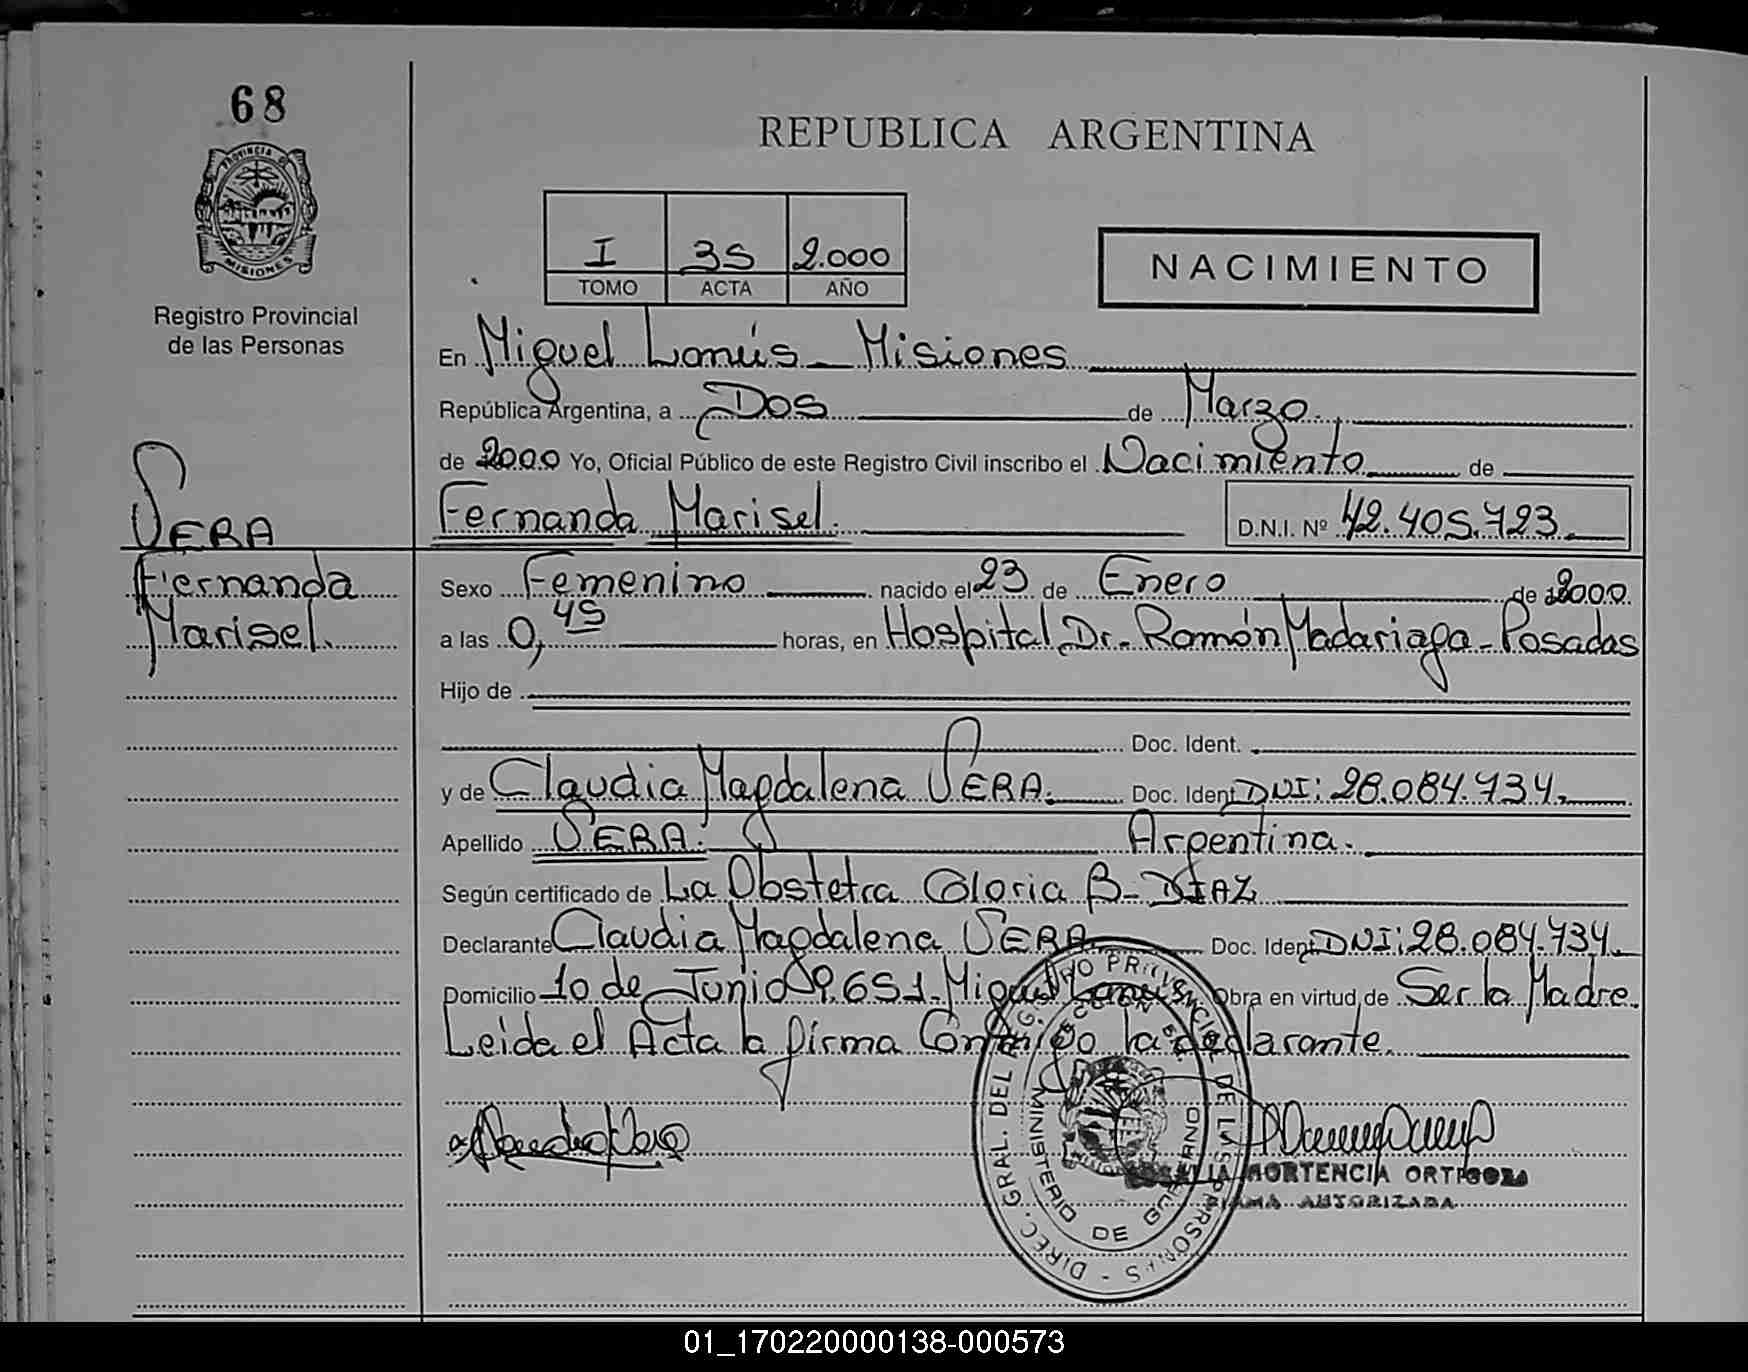 68
PROVINCIA DE
MISIONES
Registro Provincial
de las Personas
REPUBLICA ARGENTINA
I 35 2.000
TOMO ACTA AÑO
NACIMIENTO
En Miguel Lanús - Misiones
República Argentina, a Dos de Marzo.
de 2000 Yo, Oficial Público de este Registro Civil inscribo el Nacimiento de
Fernanda Marisel. D.N.I. Nº 42.405.723.
VERA
Fernanda
Marisel.
Sexo Femenino nacido el 23 de Enero de 2000.
a las 0,45 horas, en Hospital Dr. Ramón Madariaga - Posadas
Hijo de
Doc. Ident.
y de Claudia Magdalena VERA. Doc. Ident DNI: 28.084.734.
Apellido VERA. Argentina.
Según certificado de La Obstetra Gloria B. DIAZ
Declarante Claudia Magdalena VERA Doc. Ident DNI: 28.084.734.
Domicilio 10 de Junio 9.651. Miguel Lanús Obra en virtud de Ser la Madre.
Leída el Acta la firma Conmigo la declarante.
DIREC. GRAL. DEL REGISTRO PROVINCIAL DE LAS PERSONAS
MINISTERIO DE GOBIERNO
HORTENCIA ORTIGOZA
FIRMA AUTORIZADA
01_170220000138-000573